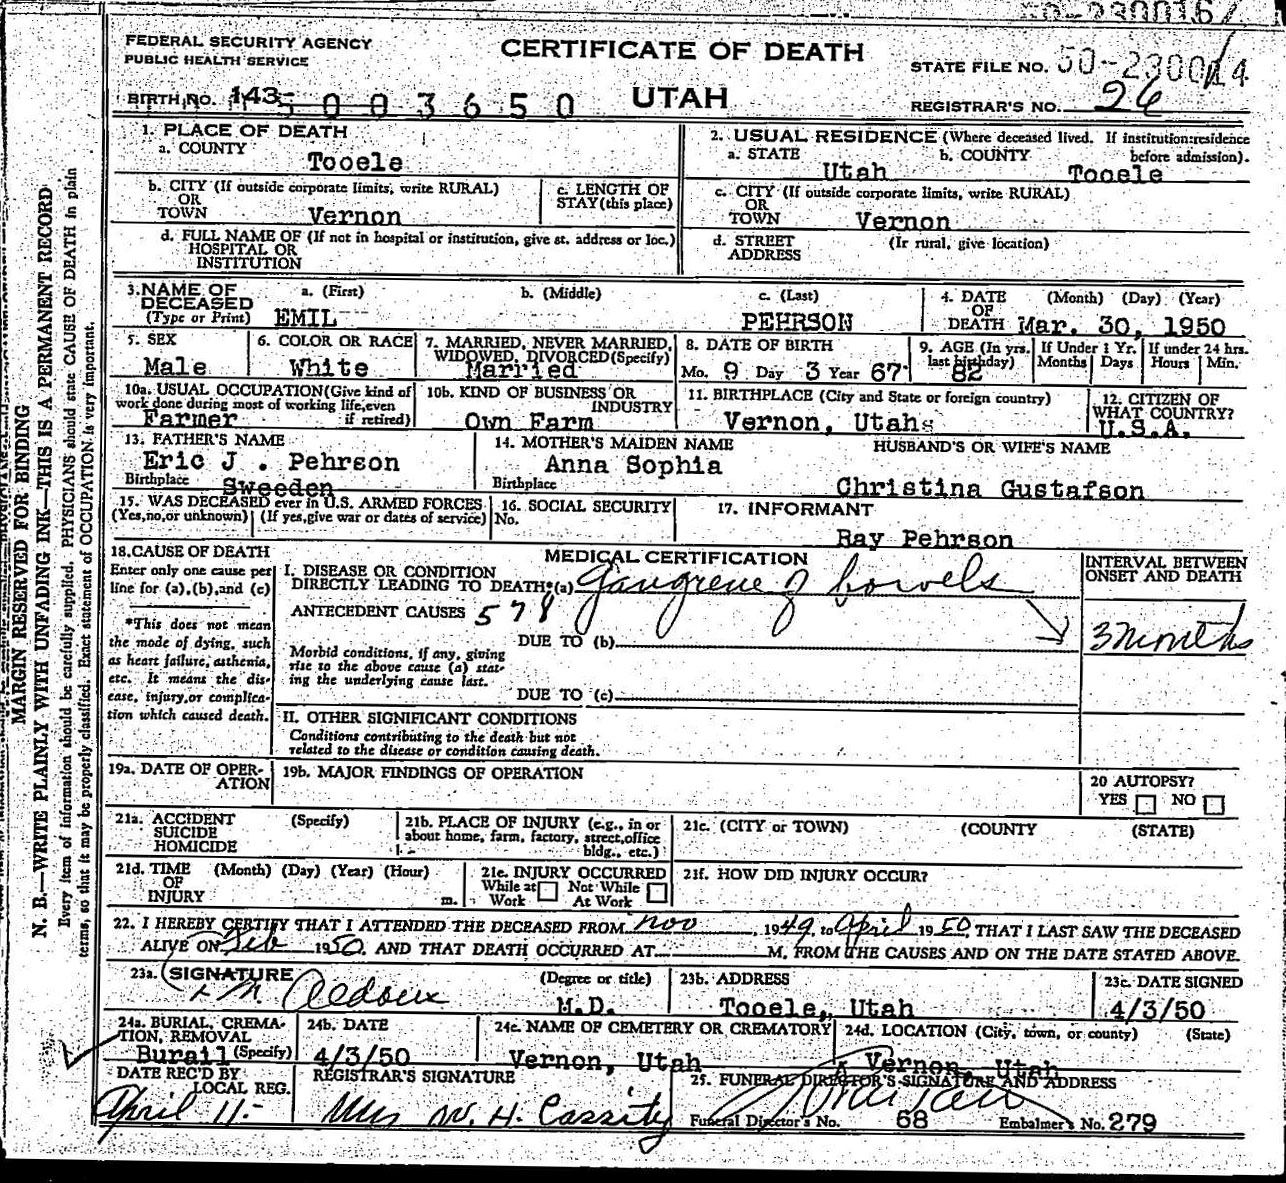 FEDERAL SECURITY AGENCY
PUBLIC HEALTH SERVICE
CERTIFICATE OF DEATH
UTAH
STATE FILE NO. 50-230014
BIRTH NO. 143- 5 0 0 3 6 5 0
REGISTRAR'S NO. 26
1. PLACE OF DEATH
a. COUNTY
Tooele
2. USUAL RESIDENCE (Where deceased lived. If institution:residence before admission).
a. STATE b. COUNTY
Utah Tooele
b. CITY (If outside corporate limits, write RURAL)
OR
TOWN Vernon
c. LENGTH OF
STAY (this place)
c. CITY (If outside corporate limits, write RURAL)
OR
TOWN Vernon
d. FULL NAME OF (If not in hospital or institution, give st. address or loc.)
HOSPITAL OR
INSTITUTION
d. STREET (Ir rural, give location)
ADDRESS
3.NAME OF a. (First) b. (Middle) c. (Last)
DECEASED
(Type or Print) EMIL PEHRSON
4. DATE (Month) (Day) (Year)
OF
DEATH Mar. 30, 1950
5. SEX
Male
6. COLOR OR RACE
White
7. MARRIED, NEVER MARRIED,
WIDOWED, DIVORCED(Specify)
Married
8. DATE OF BIRTH
Mo. 9 Day 3 Year 67
9. AGE (In yrs.
last birthday)
82
If Under 1 Yr.
Months Days
If under 24 hrs.
Hours Min.
10a. USUAL OCCUPATION(Give kind of
work done during most of working life,even
if retired)
Farmer
10b. KIND OF BUSINESS OR
INDUSTRY
Own Farm
11. BIRTHPLACE (City and State or foreign country)
Vernon, Utah
12. CITIZEN OF
WHAT COUNTRY?
U.S.A.
13. FATHER'S NAME
Eric J . Pehrson
Birthplace Sweeden
14. MOTHER'S MAIDEN NAME
Anna Sophia
Birthplace
HUSBAND'S OR WIFE'S NAME
Christina Gustafson
15. WAS DECEASED ever in U.S. ARMED FORCES
(Yes,no,or unknown) (If yes,give war or dates of service)
16. SOCIAL SECURITY
No.
17. INFORMANT
Ray Pehrson
18.CAUSE OF DEATH
Enter only one cause per
line for (a),(b),and (c)
*This does not mean
the mode of dying, such
as heart failure, asthenia,
etc. It means the dis-
ease, injury,or complica-
tion which caused death.
MEDICAL CERTIFICATION
I. DISEASE OR CONDITION
DIRECTLY LEADING TO DEATH*(a) Gangrene of bowels
ANTECEDENT CAUSES 578
DUE TO (b)
Morbid conditions, if any, giving
rise to the above cause (a) stat-
ing the underlying cause last.
DUE TO (c)
II. OTHER SIGNIFICANT CONDITIONS
Conditions contributing to the death but not
related to the disease or condition causing death.
INTERVAL BETWEEN
ONSET AND DEATH
3 months
19a. DATE OF OPER-
ATION
19b. MAJOR FINDINGS OF OPERATION
20 AUTOPSY?
YES NO
21a. ACCIDENT (Specify)
SUICIDE
HOMICIDE
21b. PLACE OF INJURY (e.g., in or
about home, farm, factory, street,office
bldg., etc.)
21c. (CITY or TOWN) (COUNTY (STATE)
21d. TIME (Month) (Day) (Year) (Hour)
OF
INJURY m.
21e. INJURY OCCURRED
While at Not While
Work At Work
21f. HOW DID INJURY OCCUR?
22. I HEREBY CERTIFY THAT I ATTENDED THE DECEASED FROM Nov, 1949, to April 1950, THAT I LAST SAW THE DECEASED
ALIVE ON Feb 1950, AND THAT DEATH OCCURRED AT M, FROM THE CAUSES AND ON THE DATE STATED ABOVE.
23a. SIGNATURE (Degree or title)
M.D.
23b. ADDRESS
Tooele, Utah
23c. DATE SIGNED
4/3/50
24a. BURIAL, CREMA-
TION, REMOVAL
Burail (Specify)
24b. DATE
4/3/50
24c. NAME OF CEMETERY OR CREMATORY
Vernon, Utah
24d. LOCATION (City, town, or county) (State)
Vernon, Utah
DATE REC'D BY
LOCAL REG.
April 11-
REGISTRAR'S SIGNATURE
Mrs W. H. Cassity
25. FUNERAL DIRECTOR'S SIGNATURE AND ADDRESS
Funeral Director's No. 68 Embalmer's No. 279
MARGIN RESERVED FOR BINDING
N. B.—WRITE PLAINLY WITH UNFADING INK—THIS IS A PERMANENT RECORD
Every item of information should be carefully supplied. PHYSICIANS should state CAUSE OF DEATH in plain
terms, so that it may be properly classified. Exact statement of OCCUPATION is very important.